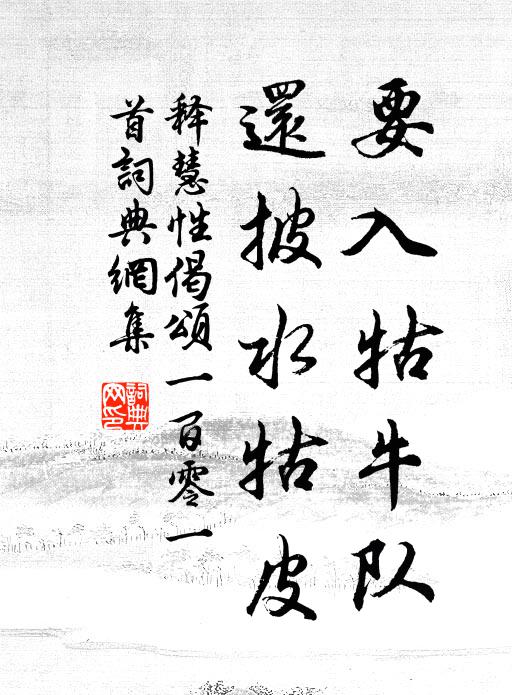 要入牯牛队
還披水牯皮
释慧性偈頌一百零一
首詞典網集
詞典网印